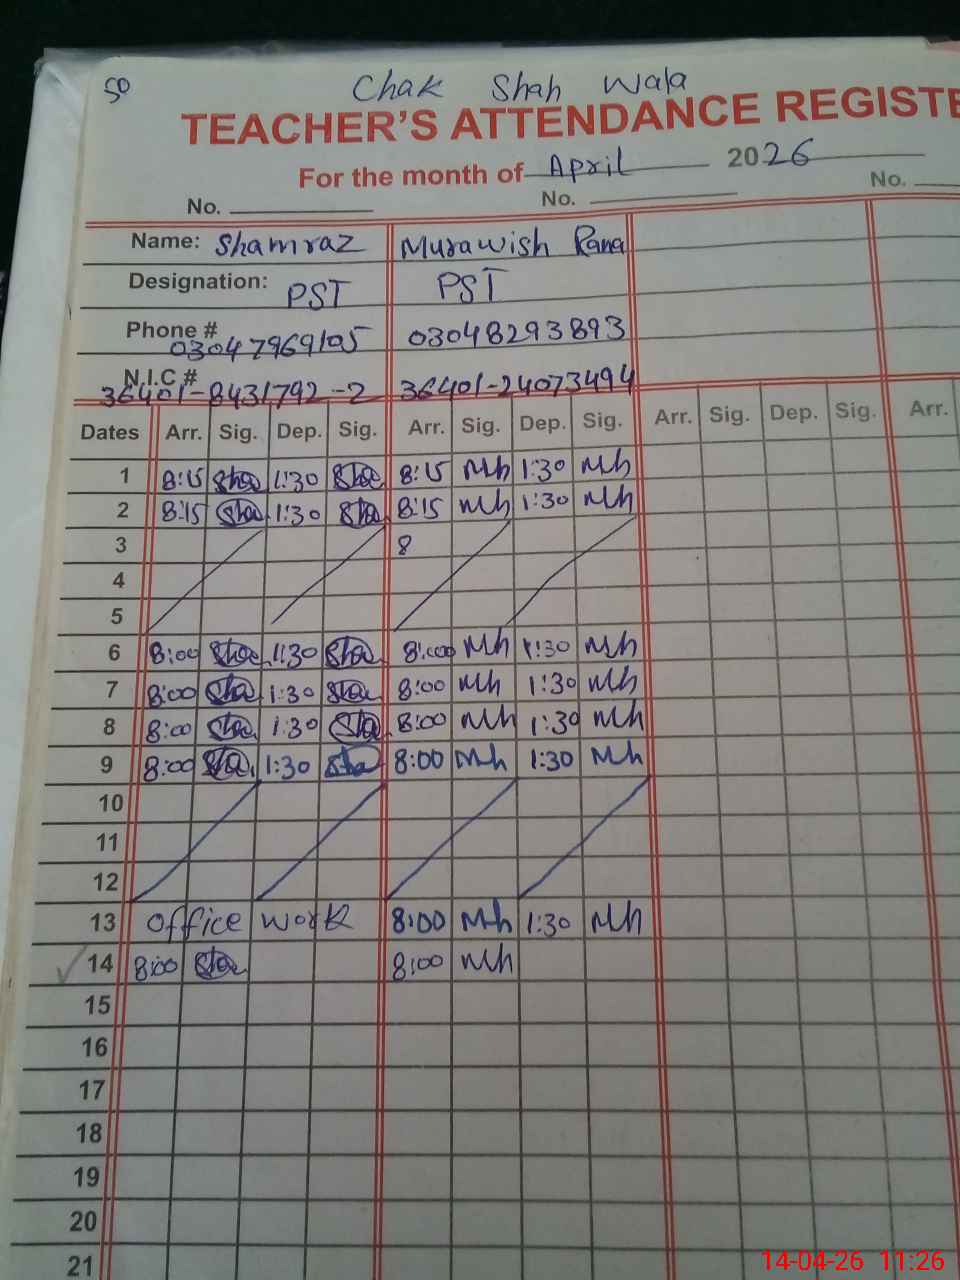 50
Chak Shah Wala
TEACHER'S ATTENDANCE REGISTE
For the month of April 2026
No. No. No.
Name: Shamraz Murawish Rana
Designation: PST PST
Phone # 03047969105 03048293893
N.I.C # 36401-8431792-2 36401-24073494
Dates Arr. Sig. Dep. Sig. Arr. Sig. Dep. Sig. Arr. Sig. Dep. Sig. Arr.
1 8:15 Sha 1:30 Sha 8:15 Mh 1:30 Mh
2 8:15 Sha 1:30 Sha 8:15 Mh 1:30 Mh
3 8
4
5
6 8:00 Sha 1:30 Sha 8:00 Mh 1:30 Mh
7 8:00 Sha 1:30 Sha 8:00 Mh 1:30 Mh
8 8:00 Sha 1:30 Sha 8:00 Mh 1:30 Mh
9 8:00 Sha 1:30 Sha 8:00 Mh 1:30 Mh
10
11
12
13 Office Work 8:00 Mh 1:30 Mh
14 8:00 Sha 8:00 Mh
15
16
17
18
19
20
21
14-04-26 11:26